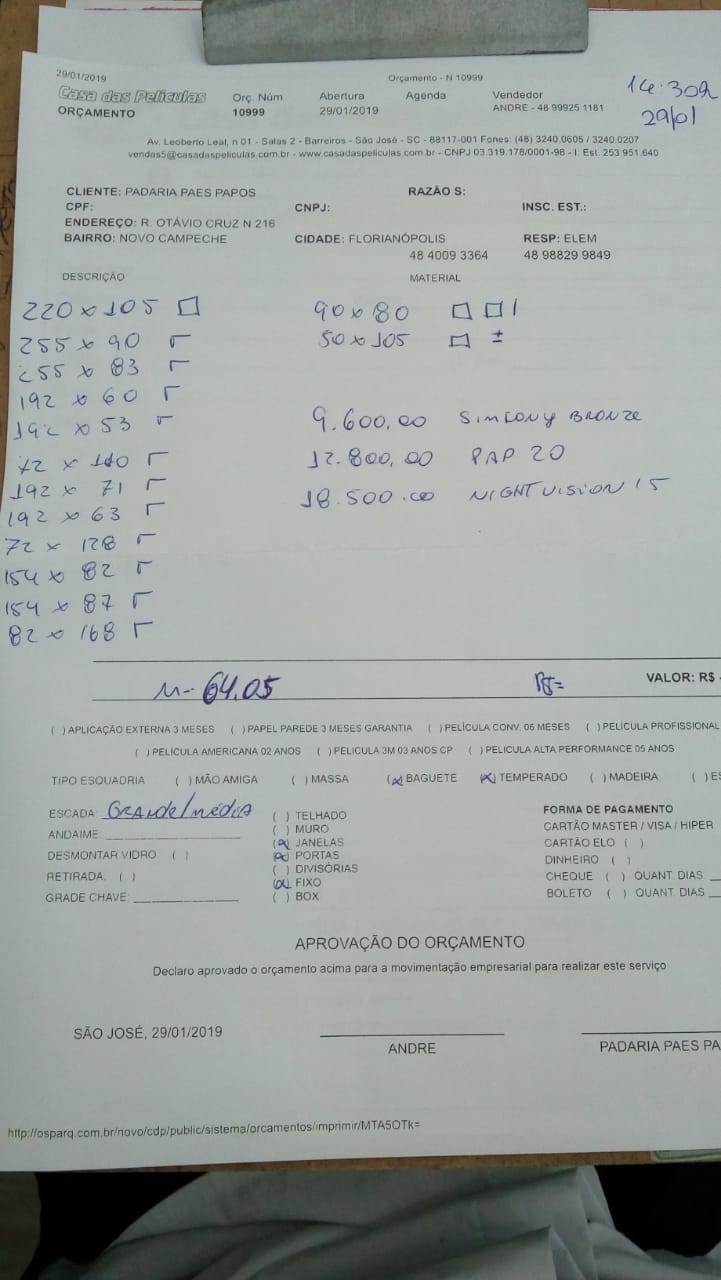 29/01/2019 Orçamento - N 10999
Casa das Películas Orç. Núm Abertura Agenda Vendedor
ORÇAMENTO 10999 29/01/2019 ANDRE - 48 99925 1181
29/01
Av. Leoberto Leal, n 01 - Salas 2 - Barreiros - São José - SC - 88117-001 Fones: (48) 3240.0605 / 3240.0207
vendas5@casadaspeliculas.com.br - www.casadaspeliculas.com.br - CNPJ 03.319.178/0001-98 - I. Est. 253.951.640
CLIENTE: PADARIA PAES PAPOS RAZÃO S:
CPF: CNPJ: INSC. EST.:
ENDEREÇO: R. OTÁVIO CRUZ N 216
BAIRRO: NOVO CAMPECHE CIDADE: FLORIANÓPOLIS RESP: ELEM
48 4009 3364 48 98829 9849
DESCRIÇÃO MATERIAL
220 x 105 90 x 80
255 x 90 50 x 105 ±
255 x 83
192 x 60
192 x 53 9.600,00 SIMFONY BRONZE
72 x 140 12.800,00 PAP 20
192 x 71 18.500.00 NIGHT VISION 15
192 x 63
72 x 128
154 x 82
154 x 87
82 x 168
M- 64.05 R$= VALOR: R$
( ) APLICAÇÃO EXTERNA 3 MESES ( ) PAPEL PAREDE 3 MESES GARANTIA ( ) PELÍCULA CONV. 06 MESES ( ) PELÍCULA PROFISSIONAL
( ) PELÍCULA AMERICANA 02 ANOS ( ) PELICULA 3M 03 ANOS CP ( ) PELICULA ALTA PERFORMANCE 05 ANOS
TIPO ESQUADRIA ( ) MÃO AMIGA ( ) MASSA (x) BAGUETE (x) TEMPERADO ( ) MADEIRA ( ) ES
ESCADA Grande/média ( ) TELHADO FORMA DE PAGAMENTO
ANDAIME ( ) MURO CARTÃO MASTER / VISA / HIPER
(x) JANELAS CARTÃO ELO ( )
DESMONTAR VIDRO ( ) (x) PORTAS DINHEIRO ( )
RETIRADA: ( ) ( ) DIVISÓRIAS CHEQUE ( ) QUANT. DIAS:
(x) FIXO BOLETO ( ) QUANT. DIAS
GRADE CHAVE: ( ) BOX
APROVAÇÃO DO ORÇAMENTO
Declaro aprovado o orçamento acima para a movimentação empresarial para realizar este serviço
SÃO JOSÉ, 29/01/2019
ANDRE PADARIA PAES PA
http://osparq.com.br/novo/cdp/public/sistema/orcamentos/imprimir/MTA5OTk=